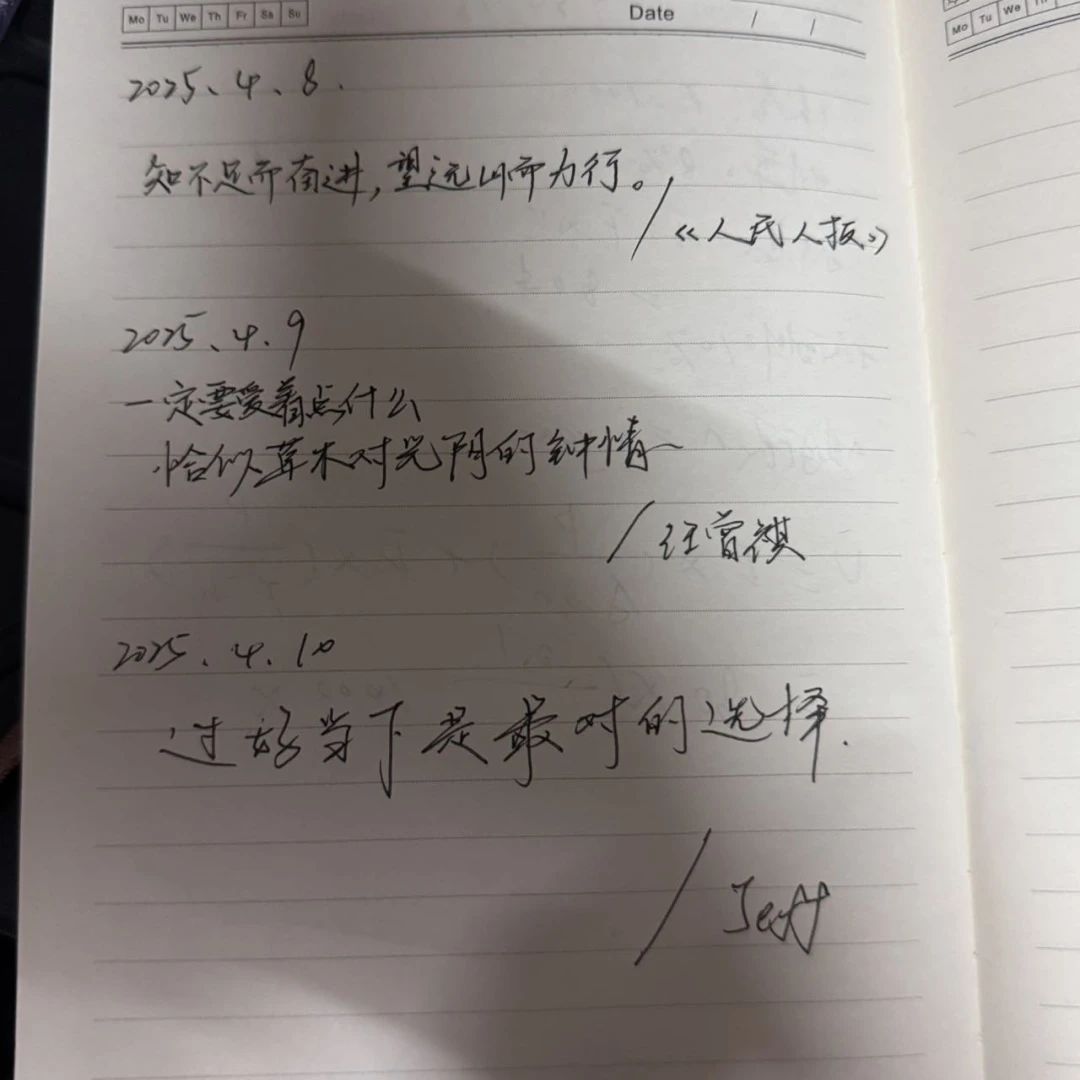 Mo Tu We Th Fr Sa Su
Date / /
2025、4、8.
知不足而奋进，望远山而力行。
/《人民人报》
2025、4、9
一定要爱着点什么
恰似草木对光阴的钟情
/汪曾祺
2025、4、10
过好当下是最对的选择.
/Jeff
Mo Tu We